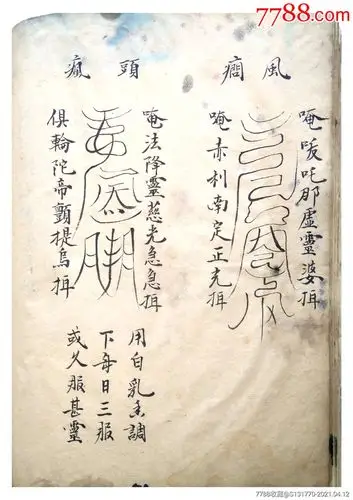 7788.com
風癇
唵唆吒那虛靈婆揖
唵赤利南定正克揖
頭瘋
唵法降靈慈光急急揖
俱輪陀帝顫提烏揖
用白乳香調
下每日三服
或久服甚靈
7788收藏@S131770-2021.04.12